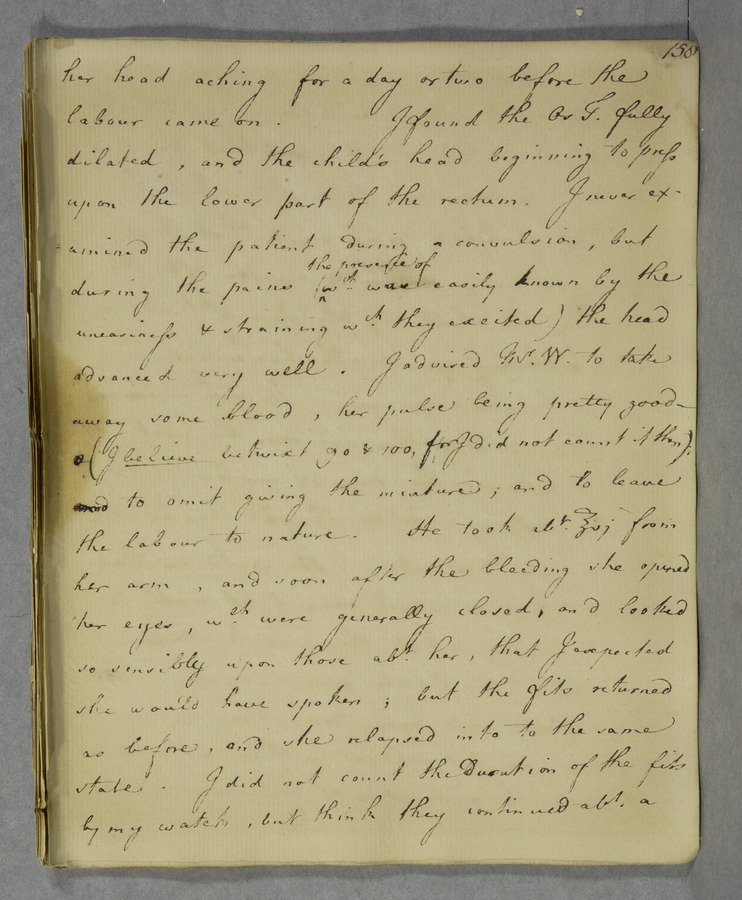 150
her head aching for a day or two before the
labour came on. I found the Os T. fully
dilated, and the child's head beginning to press
upon the lower part of the rectum. I never ex-
=amined the patient during a convulsion, but
the presence of
during the pains (wch. was easily known by the
uneasiness & straining wch. they excited) the head
advanced very well. I advised Mr. W. to take
away some blood, her pulse being pretty good-
(I believe betwixt 90 & 100, for I did not count it then),
and to omit giving the mixture; and to leave
the labour to nature. He took abt. ℥vj from
her arm, and soon after the bleeding she opened
her eyes, wch. were generally closed, and looked
so sensibly upon those abt. her, that I expected
she would have spoken; but the fits returned
as before, and she relapsed into to the same
state. I did not count the Duration of the fits
by my watch, but think they continued abt. a